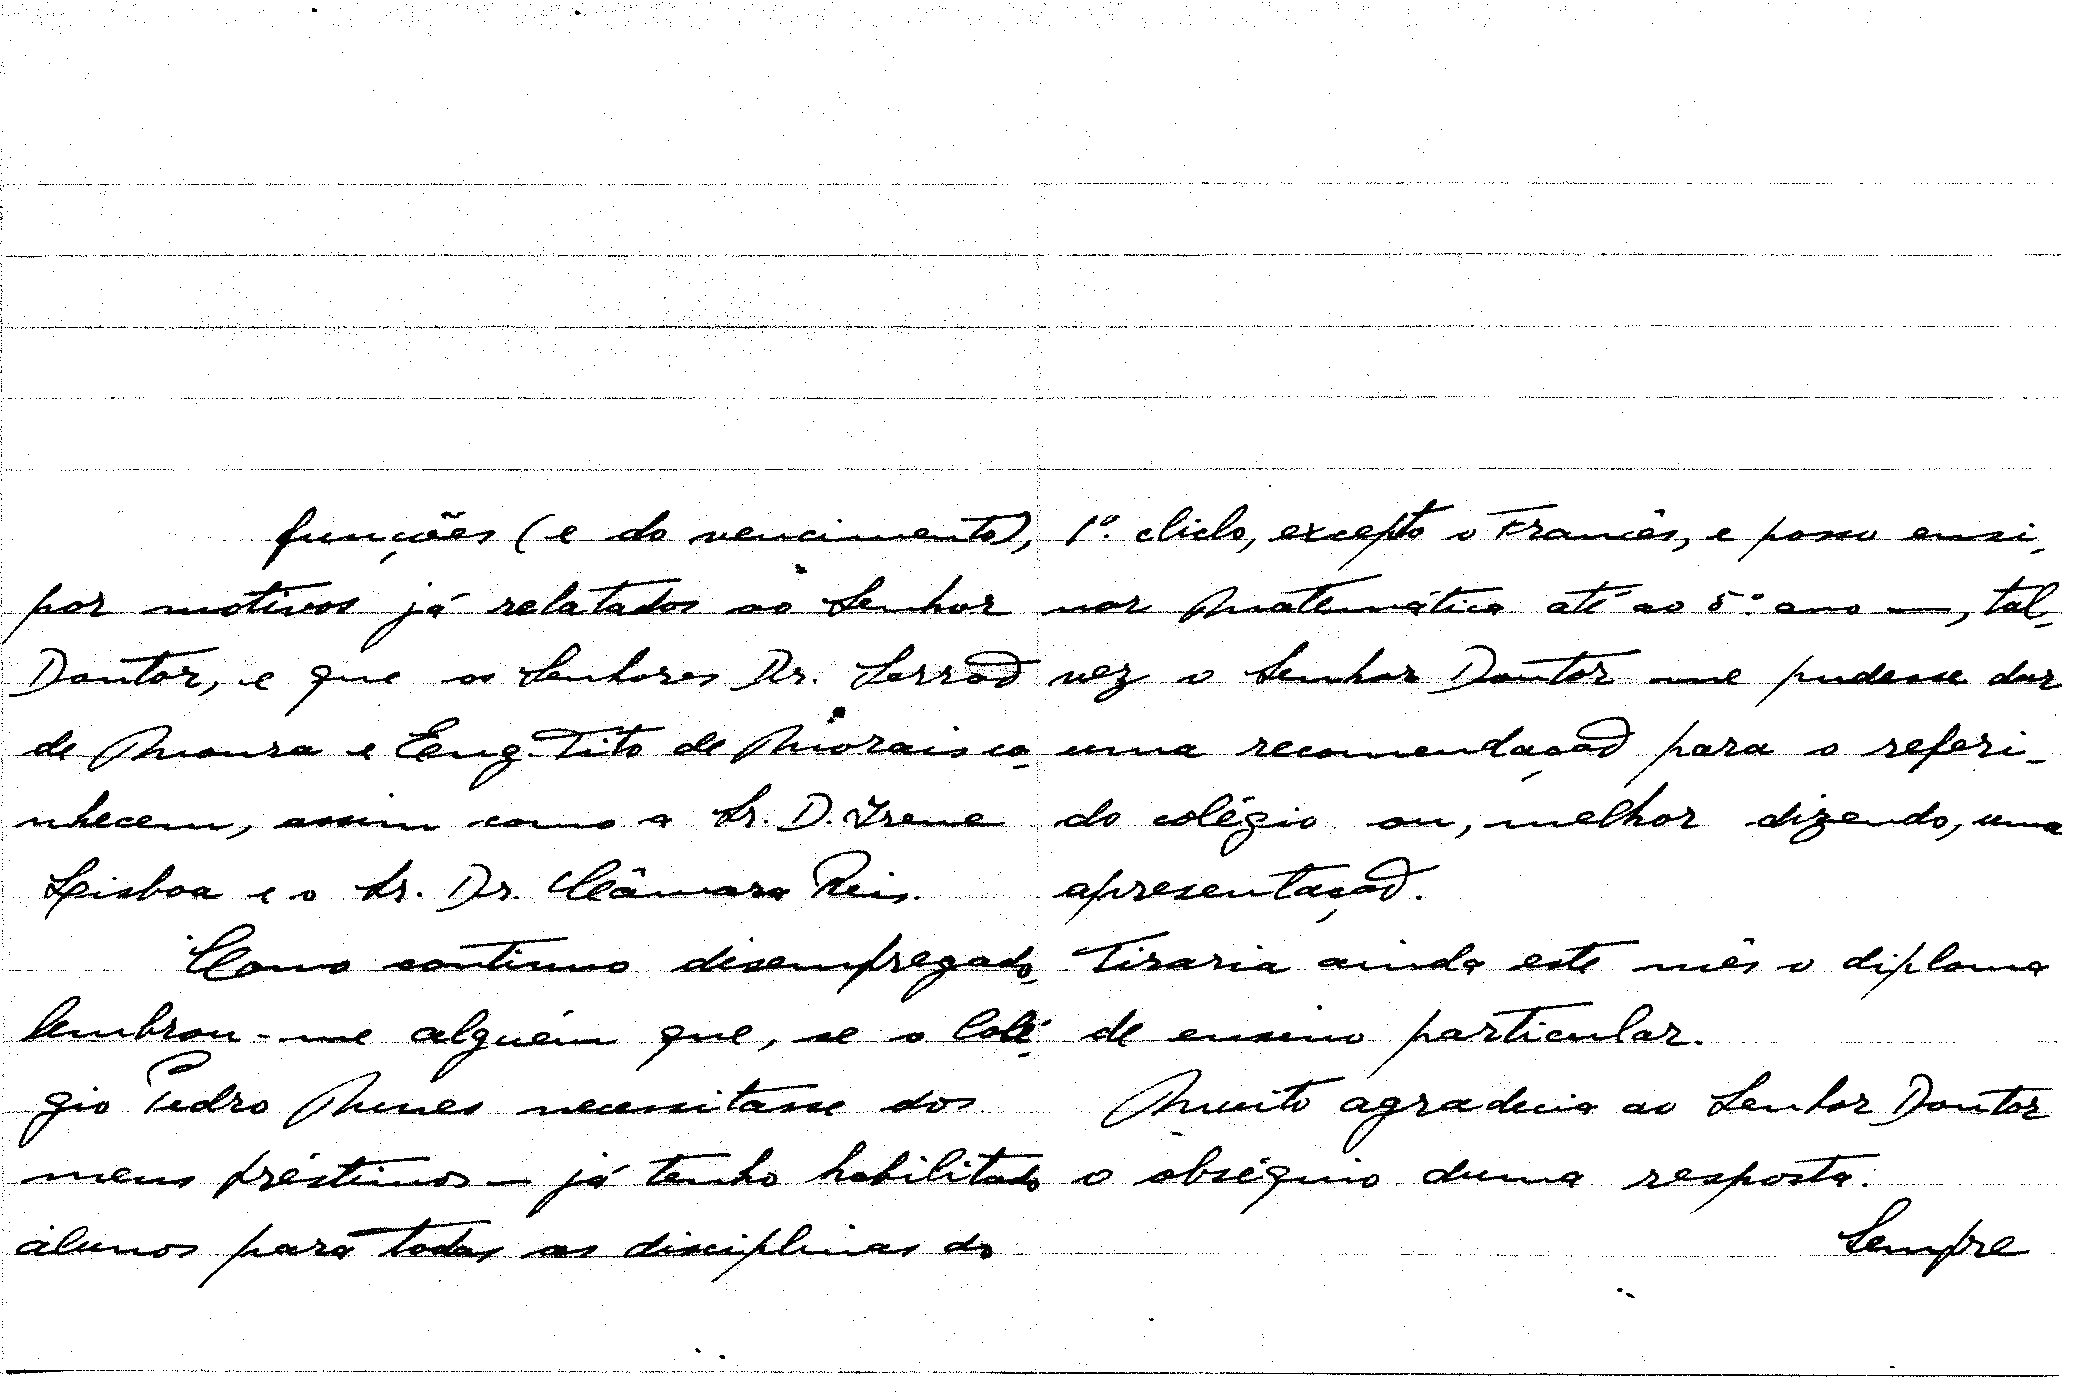 funções (e do vencimento),
por motivos já relatados ao Senhor
Doutor, e que os Senhores Dr. Serrão
de Moura e Eng. Tito de Morais co-
nhecem, assim como a Sr. D. Irene
Lisboa e o Sr. Dr. Câmara Reis.
Como continuo desempregado
lembrou-me alguém que, se o Colé-
gio Pedro Nunes necessitasse dos
meus préstimos — já tenho habilitado
alunos para todas as disciplinas do
1º. ciclo, excepto o Francês, e posso ensi-
nar Matemática até ao 5º ano —, tal-
vez o Senhor Doutor me pudesse dar
uma recomendação para o referi-
do colégio ou, melhor dizendo, uma
apresentação.
Tiraria ainda este mês o diploma
de ensino particular.
Muito agradecia ao Senhor Doutor
o obséquio duma resposta.
Sempre